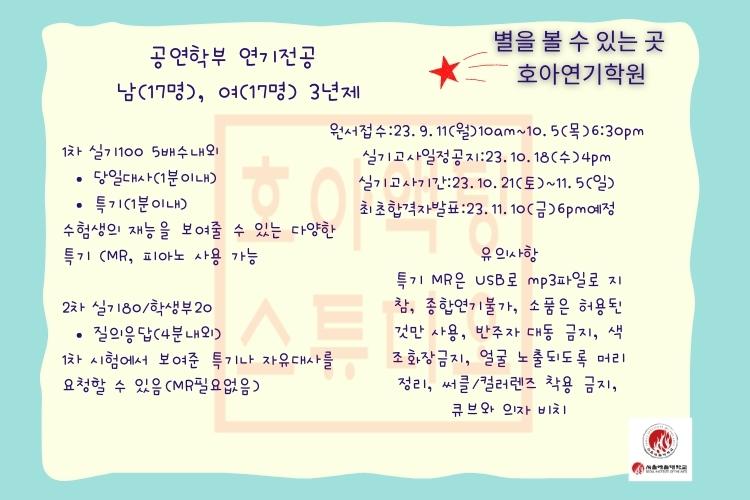 공연학부 연기전공
남(17명), 여(17명) 3년제
별을 볼 수 있는 곳
호아연기학원
1차 실기100 5배수내외
• 당일대사(1분이내)
• 특기(1분이내)
수험생의 재능을 보여줄 수 있는 다양한
특기 (MR, 피아노 사용 가능
2차 실기80/학생부20
• 질의응답(4분내외)
1차 시험에서 보여준 특기나 자유대사를
요청할 수 있음(MR필요없음)
원서접수:23.9.11(월)10am~10.5(목)6:30pm
실기고사일정공지:23.10.18(수)4pm
실기고사기간:23.10.21(토)~11.5(일)
최초합격자발표:23.11.10(금)6pm예정
유의사항
특기 MR은 USB로 mp3파일로 지
참, 종합연기불가, 소품은 허용된
것만 사용, 반주자 대동 금지, 색
조화장금지, 얼굴 노출되도록 머리
정리, 써클/컬러렌즈 착용 금지,
큐브와 의자 비치
호아액팅
스튜디오
서울예술대학교
SEOUL INSTITUTE OF THE ARTS